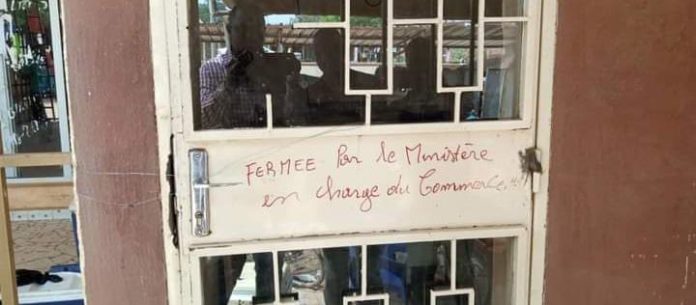 FERMEE Par le Ministère
en charge du Commerce